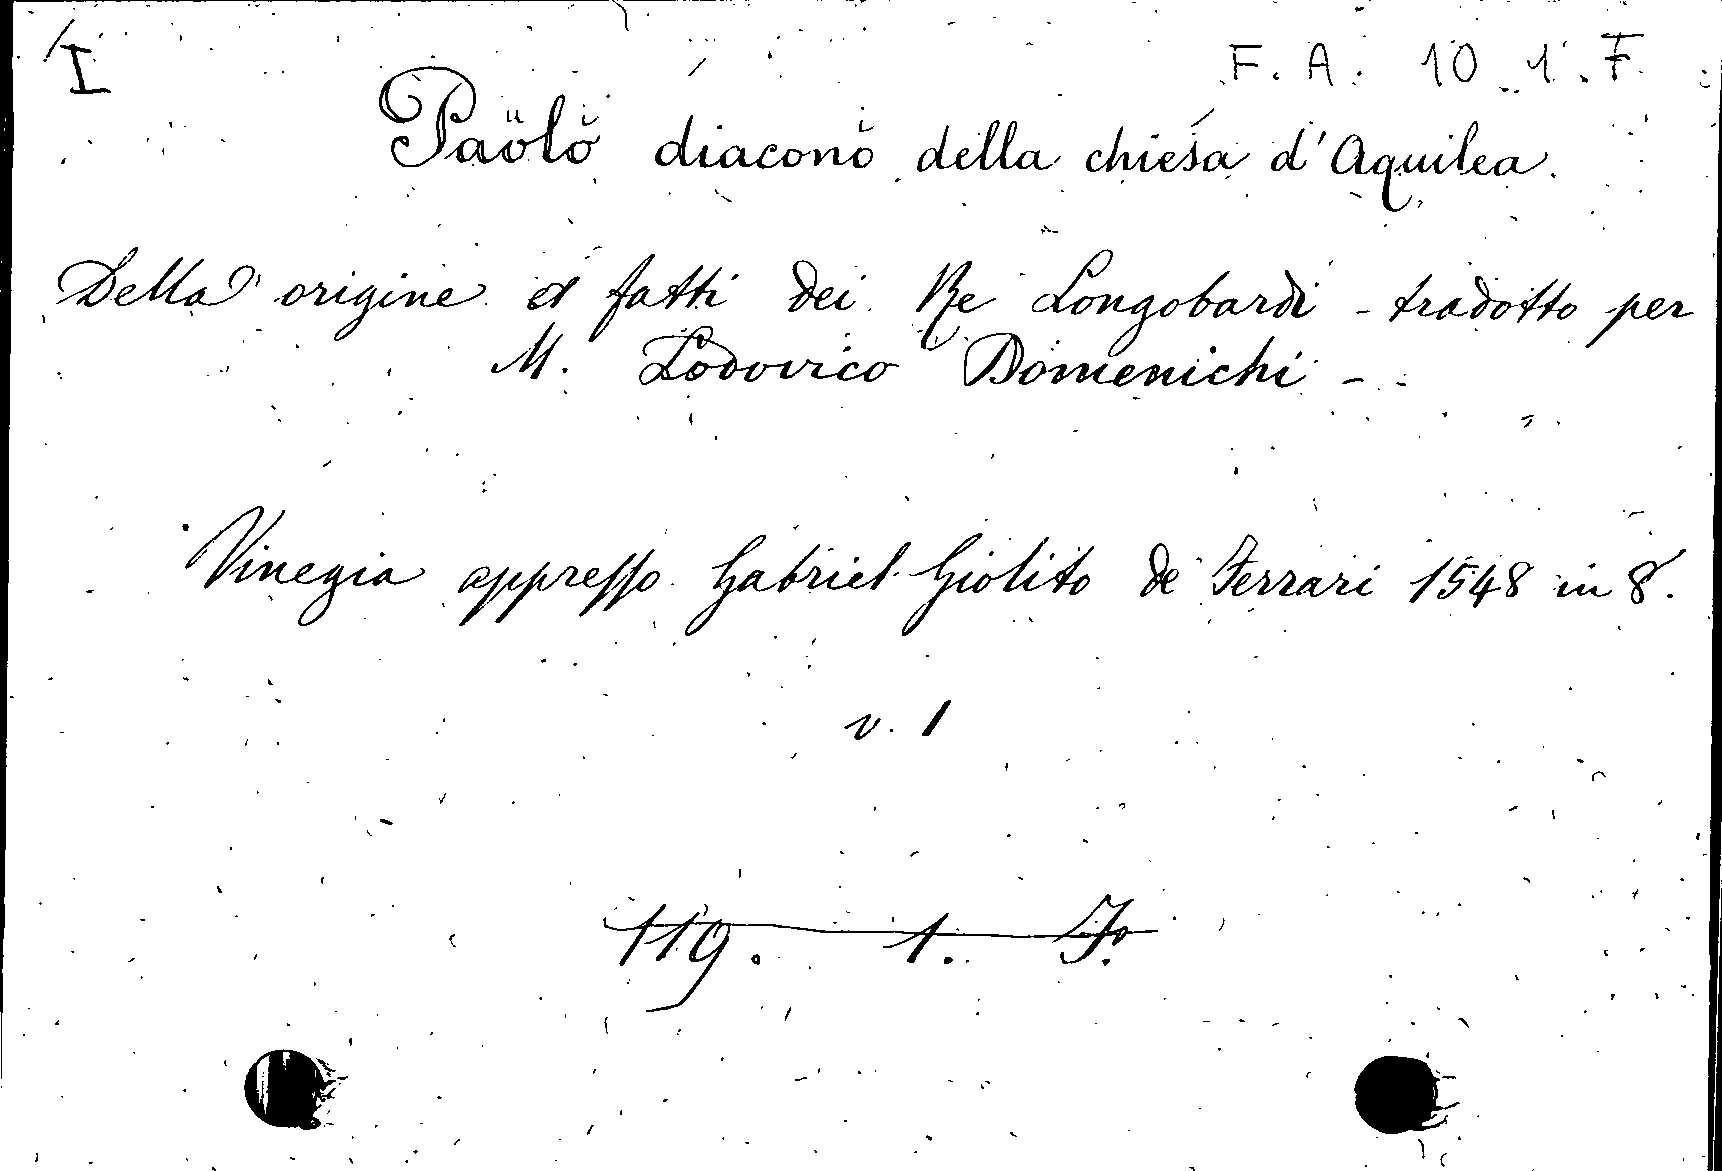 I
F. A. 10. 1. F.
Paolo diacono della chiesa d'Aquilea.
Della origine et fatti dei Re Longobardi - tradotto per
M. Lodovico Domenichi -
Vinegia appresso Gabriel Giolito de Ferrari 1548 in 8.
v. 1
119. 1. F.